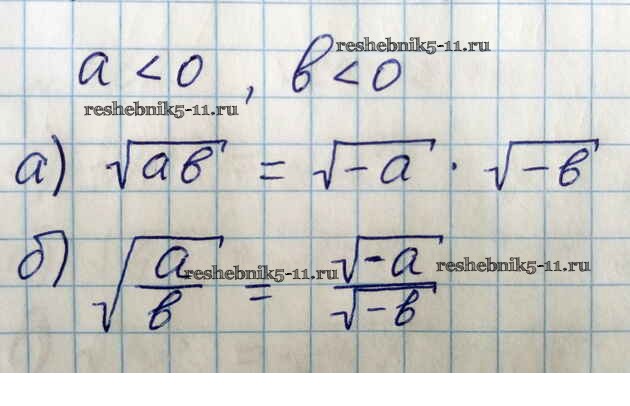 reshebnik5-11.ru
a < 0 , b < 0
reshebnik5-11.ru
а) √ab = √-a · √-b
б) √a/b = √-a/√-b
reshebnik5-11.ru reshebnik5-11.ru